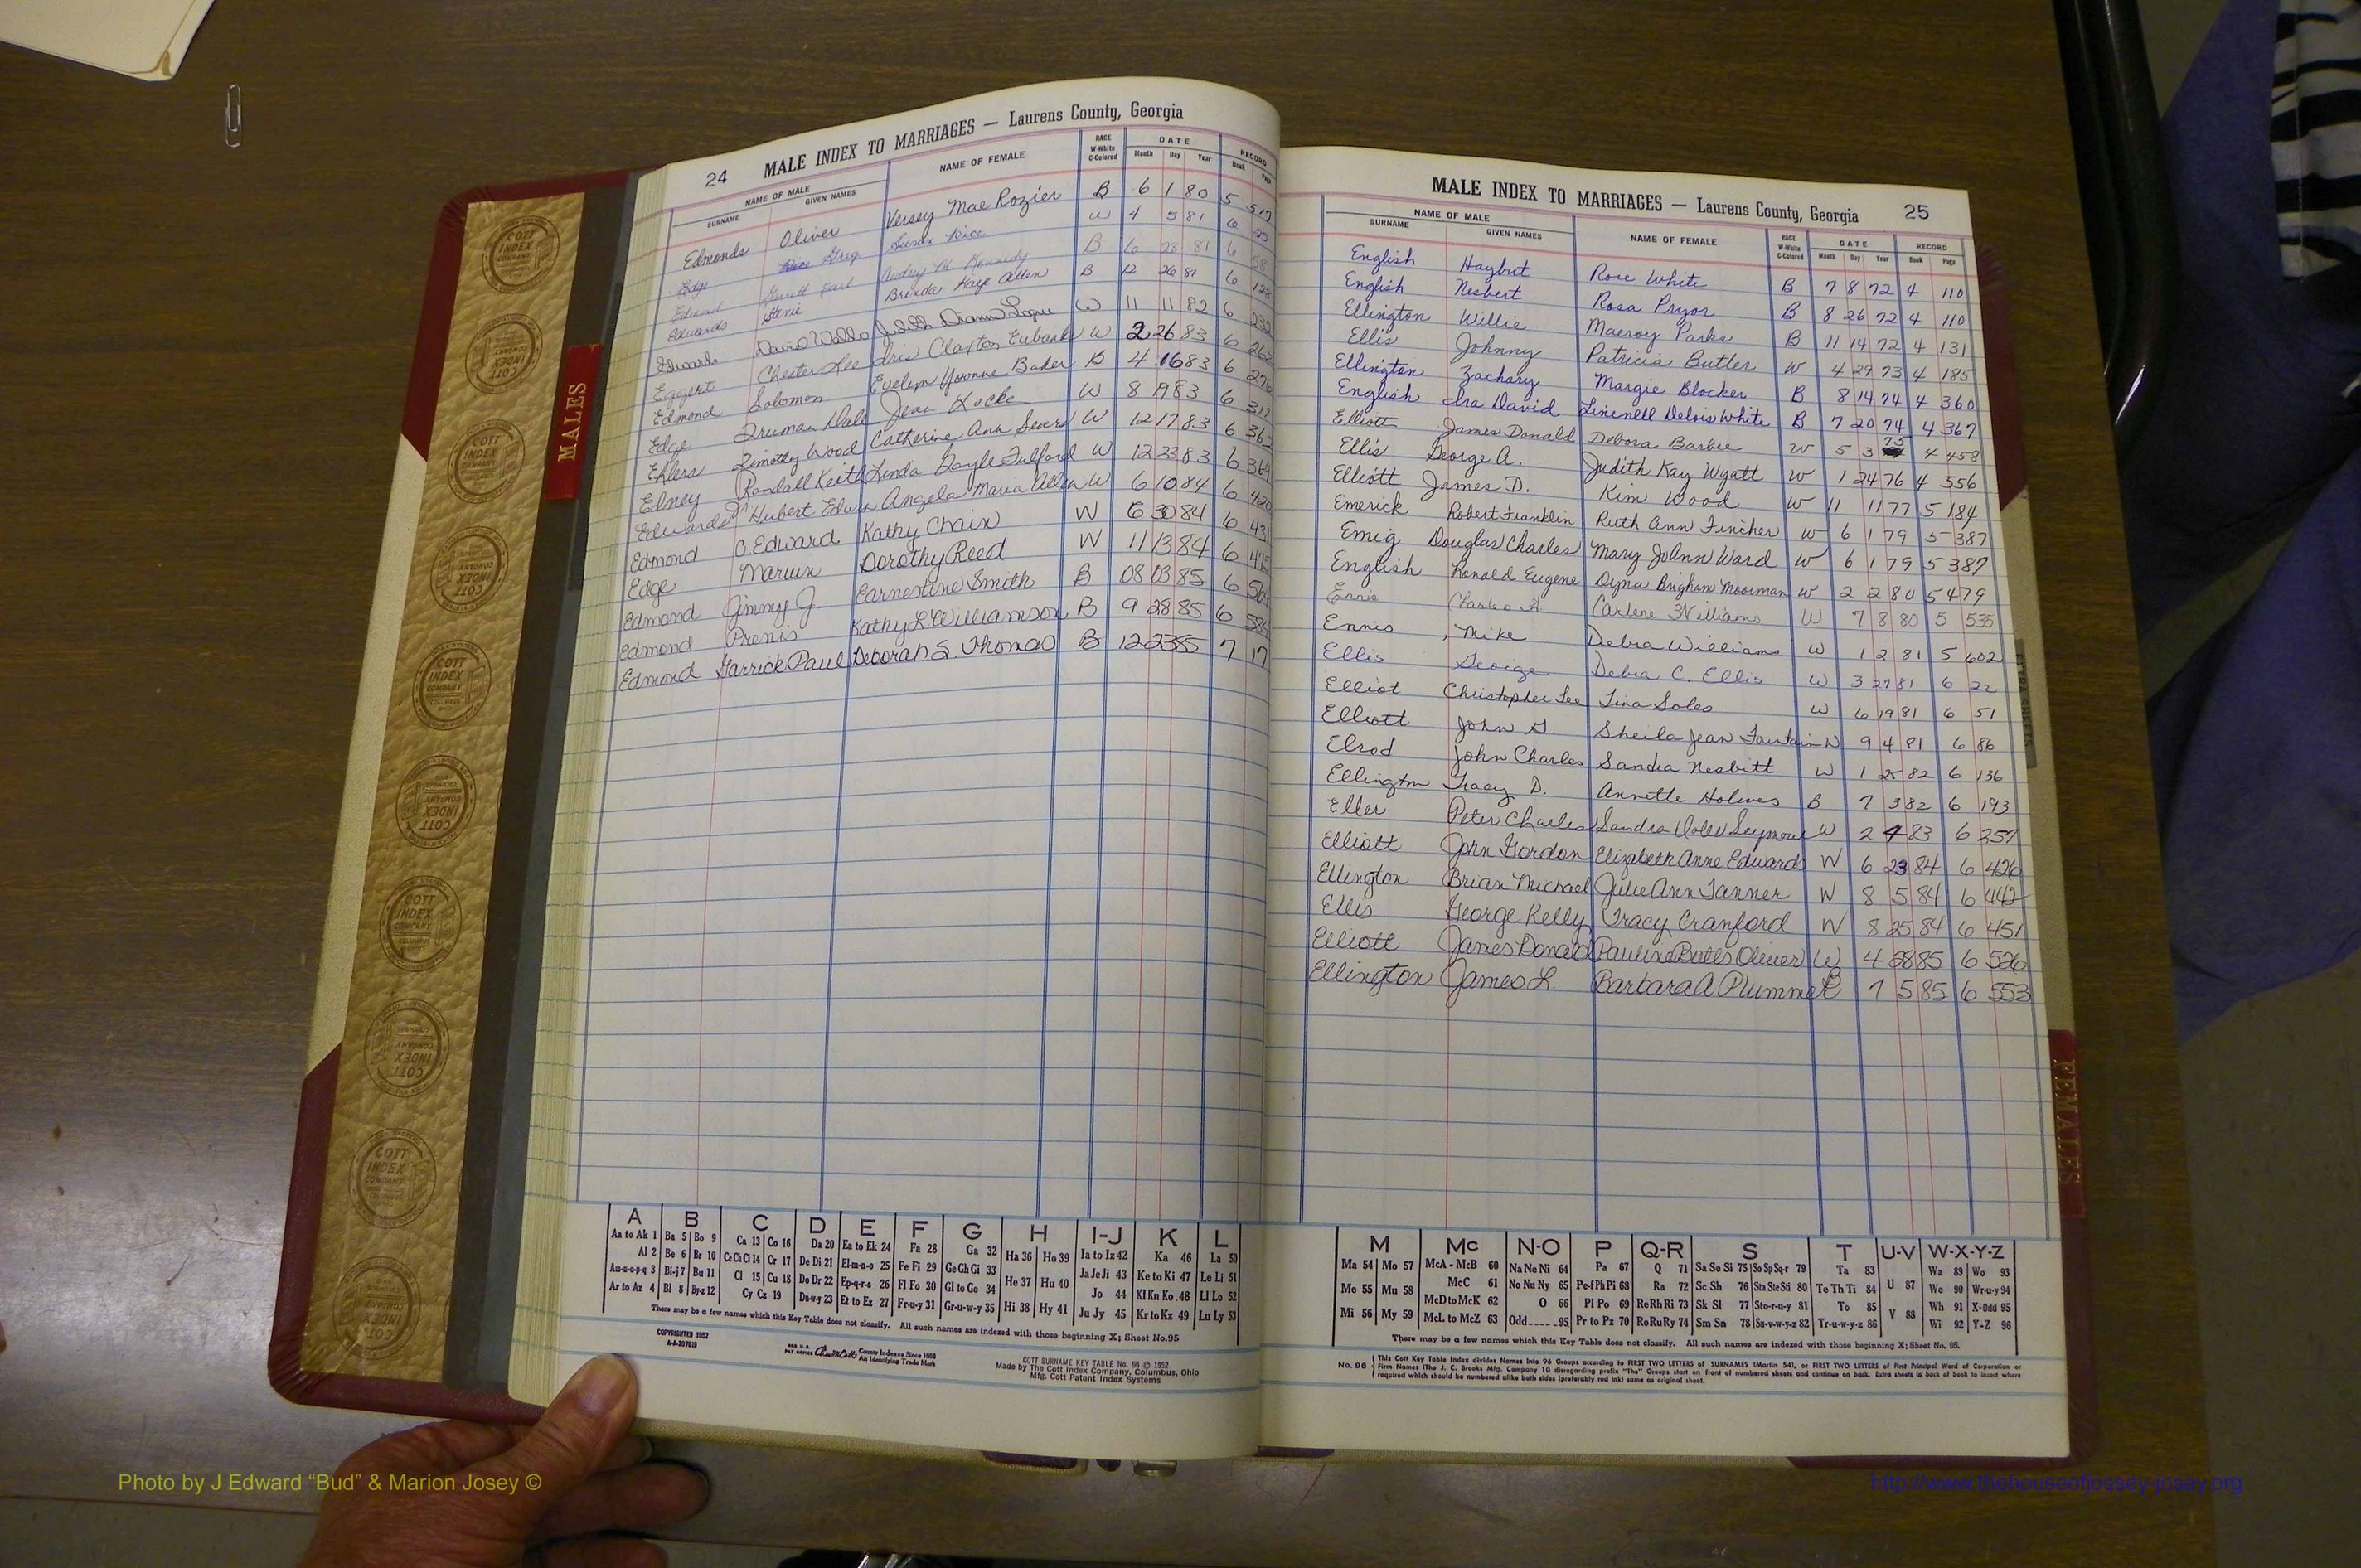 24 MALE INDEX TO MARRIAGES — Laurens County, Georgia
NAME OF MALE NAME OF FEMALE RACE W-White C-Colored DATE RECORD
SURNAME GIVEN NAMES Month Day Year Book Page
Edmonds Oliver Versey Mae Rozier B 6 1 80 5 517
Edge Greg Susan Price W 4 5 81 6
Edmond Garrett Earl Audrey M. Kennedy B 6 28 81 6 58
Edwards Stevie Brenda Kaye Allen B 12 26 81 6 128
Edwards David Waldo Judith Diann Logue W 11 11 82 6 232
Eggert Chester Lee Iris Claxton Eubanks W 2 26 83 6 262
Edmond Solomon Evelyn Yvonne Baker B 4 16 83 6 276
Edge Truman Dale Jean Locke W 8 19 83 6 317
Ehlers Timothy Wood Catherine Ann W 12 17 83 6 362
Edney Randall Keith Linda Gayle Fulford W 12 23 83 6 364
Edwards Hubert Edwin Angela Maria Allen W 6 10 84 6 420
Edmond C. Edward Kathy Chain W 6 30 84 6 431
Edge Marion Dorothy Reed W 11 13 84 6 475
Edmond Jimmy J. Earnestine Smith B 08 03 85 6
Edmond Prenis Kathy L. Williamson B 9 28 85 6 584
Edmond Garrick Paul Deborah S. Thomas B 12 23 85 7 17
A B C D E F G H I-J K L
Aa to Ak 1 Ba 5 Bo 9 Ca 13 Co 16 Da 20 Ea to Ek 24 Fa 28 Ga 32 Ha 36 Ho 39 Ia to Iz 42 Ka 46 La 50
Al 2 Be 6 Br 10 Ce Ch Ci 14 Cr 17 De Di 21 El-m-n-o 25 Fe Fi 29 Ge Gh Gi 33 He 37 Hu 40 Ja Je Ji 43 Ke to Ki 47 Le Li 51
Am-n-o-p-q 3 Bi-j 7 Bu 11 Cl 15 Cu 18 Do Dr 22 Ep-q-r-s 26 Fl Fo 30 Gl to Go 34 Hi 38 Hy 41 Jo 44 Kl Kn Ko 48 Ll Lo 52
Ar to Az 4 Bl 8 By-z 12 Cy Cz 19 Du-w-y 23 Et to Ez 27 Fr-u-y 31 Gr-u-w-y 35 Ju Jy 45 Kr to Kz 49 Lu Ly 53
There may be a few names which this Key Table does not classify. All such names are indexed with those beginning X; Sheet No. 95
COPYRIGHTED 1952
A-A-207619
REG. U.S. PAT OFFICE County Indexes Since 1888
An Identifying Trade Mark
COTT SURNAME KEY TABLE No. 96 © 1952
Made by The Cott Index Company, Columbus, Ohio
Mfg. Cott Patent Index Systems
MALE INDEX TO MARRIAGES — Laurens County, Georgia 25
NAME OF MALE NAME OF FEMALE RACE W-White C-Colored DATE RECORD
SURNAME GIVEN NAMES Month Day Year Book Page
English Haybut Rose White B 7 8 72 4 110
English Nesbert Rosa Pryor B 8 26 72 4 110
Ellington Willie Maeroy Parks B 11 14 72 4 131
Ellis Johnny Patricia Butler W 4 29 73 4 185
Ellington Zachary Margie Blocker B 8 14 74 4 360
English Ira David Linenell Delois White B 7 20 74 4 367
Elliott James Donald Debora Barbee W 5 3 75 4 458
Ellis George A. Judith Kay Wyatt W 1 24 76 4 556
Elliott James D. Kim Wood W 11 11 77 5 184
Emerick Robert Franklin Ruth Ann Fincher W 6 1 79 5 387
Emig Douglas Charles Mary JoAnn Ward W 6 1 79 5 387
English Ronald Eugene Dyna Brigham Moorman W 2 2 80 5 479
Ennis Charles A. Carlene Williams W 7 8 80 5 535
Ennis Mike Debra Williams W 1 2 81 5 602
Ellis George Debra C. Ellis W 3 27 81 6 22
Elliot Christopher Lee Tina Soles W 6 19 81 6 51
Elliott John G. Sheila Jean W 9 4 81 6 86
Elrod John Charles Sandra Nesbitt W 1 25 82 6 136
Ellington Tracy D. Annette Holmes B 7 3 82 6 193
Eller Peter Charles Sandra Seymour W 2 4 83 6 257
Elliott John Gordon Elizabeth Anne Edwards W 6 23 84 6 426
Ellington Brian Michael Julie Ann Tanner W 8 5 84 6 442
Ellis George Kelly Tracy Cranford W 8 25 84 6 451
Elliott James Donald Pauline Batts Oliver W 4 28 85 6 526
Ellington James L. Barbara A Plummer B 7 5 85 6 553
M Mc N-O P Q-R S T U-V W-X-Y-Z
Ma 54 Mo 57 McA - McB 60 Na Ne Ni 64 Pa 67 Q 71 Sa Se Si 75 So Sp Sq-r 79 Ta 83 U 87 Wa 89 Wo 93
Me 55 Mu 58 McC 61 No Nu Ny 65 Pe-f Ph Pi 68 Ra 72 Sc Sh 76 Sta Ste Sti 80 Te Th Ti 84 We 90 Wr-u-y 94
McD to McK 62 O 66 Pl Po 69 Re Rh Ri 73 Sk Sl 77 Sto-r-u-y 81 To 85 V 88 Wh 91 X-Odd 95
Mi 56 My 59 McL to McZ 63 Odd.....95 Pr to Pz 70 Ro Ru Ry 74 Sm Sn 78 Su-v-w-y-z 82 Tr-u-w-y-z 86 Wi 92 Y-Z 96
There may be a few names which this Key Table does not classify. All such names are indexed with those beginning X; Sheet No. 95.
No. 96 This Cott Key Table Index divides Names into 96 Groups according to FIRST TWO LETTERS of SURNAMES (Martin 54), or FIRST TWO LETTERS of First Principal Word of Corporation or
Firm Names (The J. C. Brooks Mfg. Company 10 disregarding prefix "The" Groups start on front of numbered sheets and continue on back. Extra sheets in back of book to insert where
required which should be numbered alike both sides (preferably red ink) same as original sheet.
MALES
FEMALES
COTT INDEX COMPANY
Photo by J Edward “Bud” & Marion Josey ©
http://www.thehouseofjossey-josey.org